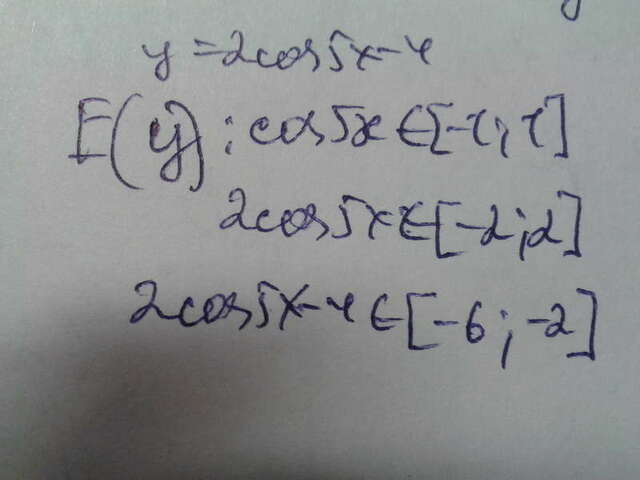 y = 2cos5x-4
E(y): cos5x∈[-1;1]
2cos5x∈[-2;2]
2cos5x-4∈[-6;-2]